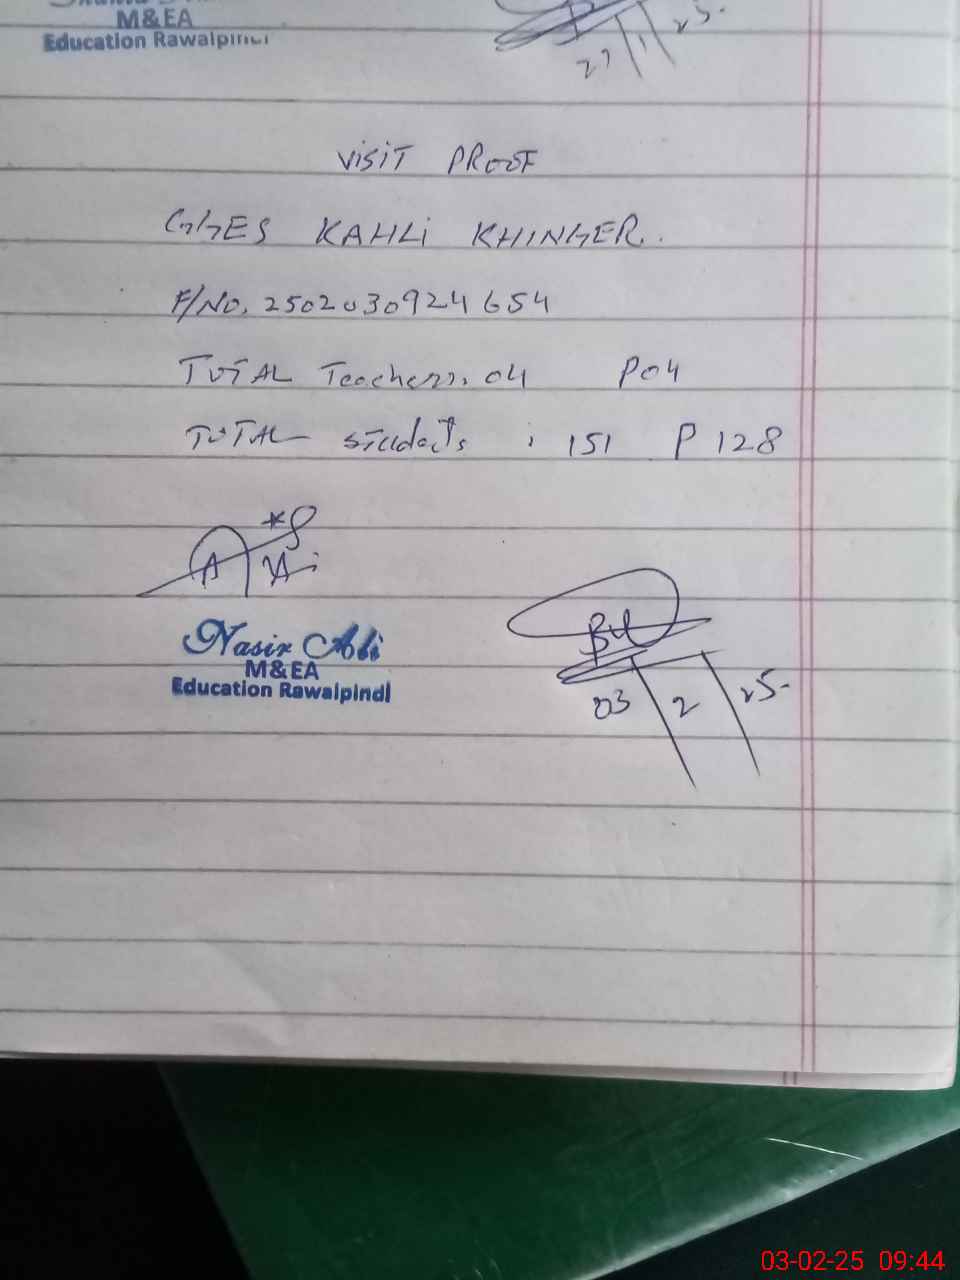 M&EA
Education Rawalpindi
27 1 25-
VISIT PROOF
GGES KAHLI KHINGER.
F/NO. 2502030924654
TOTAL Teachers. 04 P04
TOTAL Students : 151 P 128
Nasir Ali
M&EA
Education Rawalpindi
03 2 25-
03-02-25 09:44